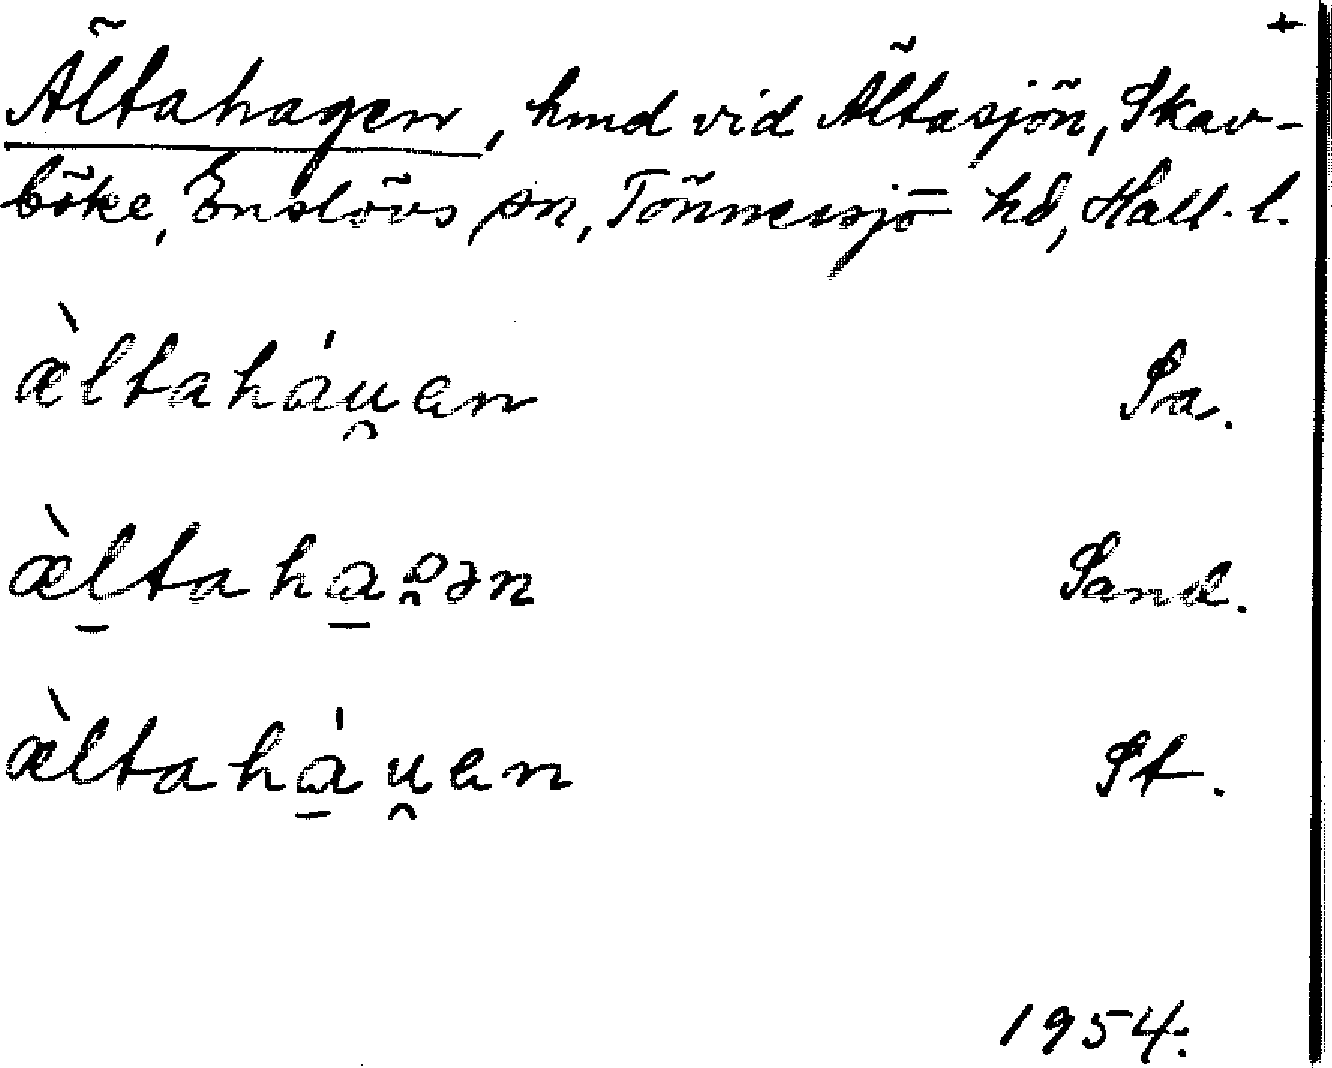 +
Ältahagen, hmd vid Ältasjön, Skav-
böke, Enslövs sn, Tönnersjö hd, Hall. l.
æ̀ltaháu̯en Sa.
æ̀l̠taha̠o̯ən Sand.
æ̀ltahá̠u̯en St.
1954.